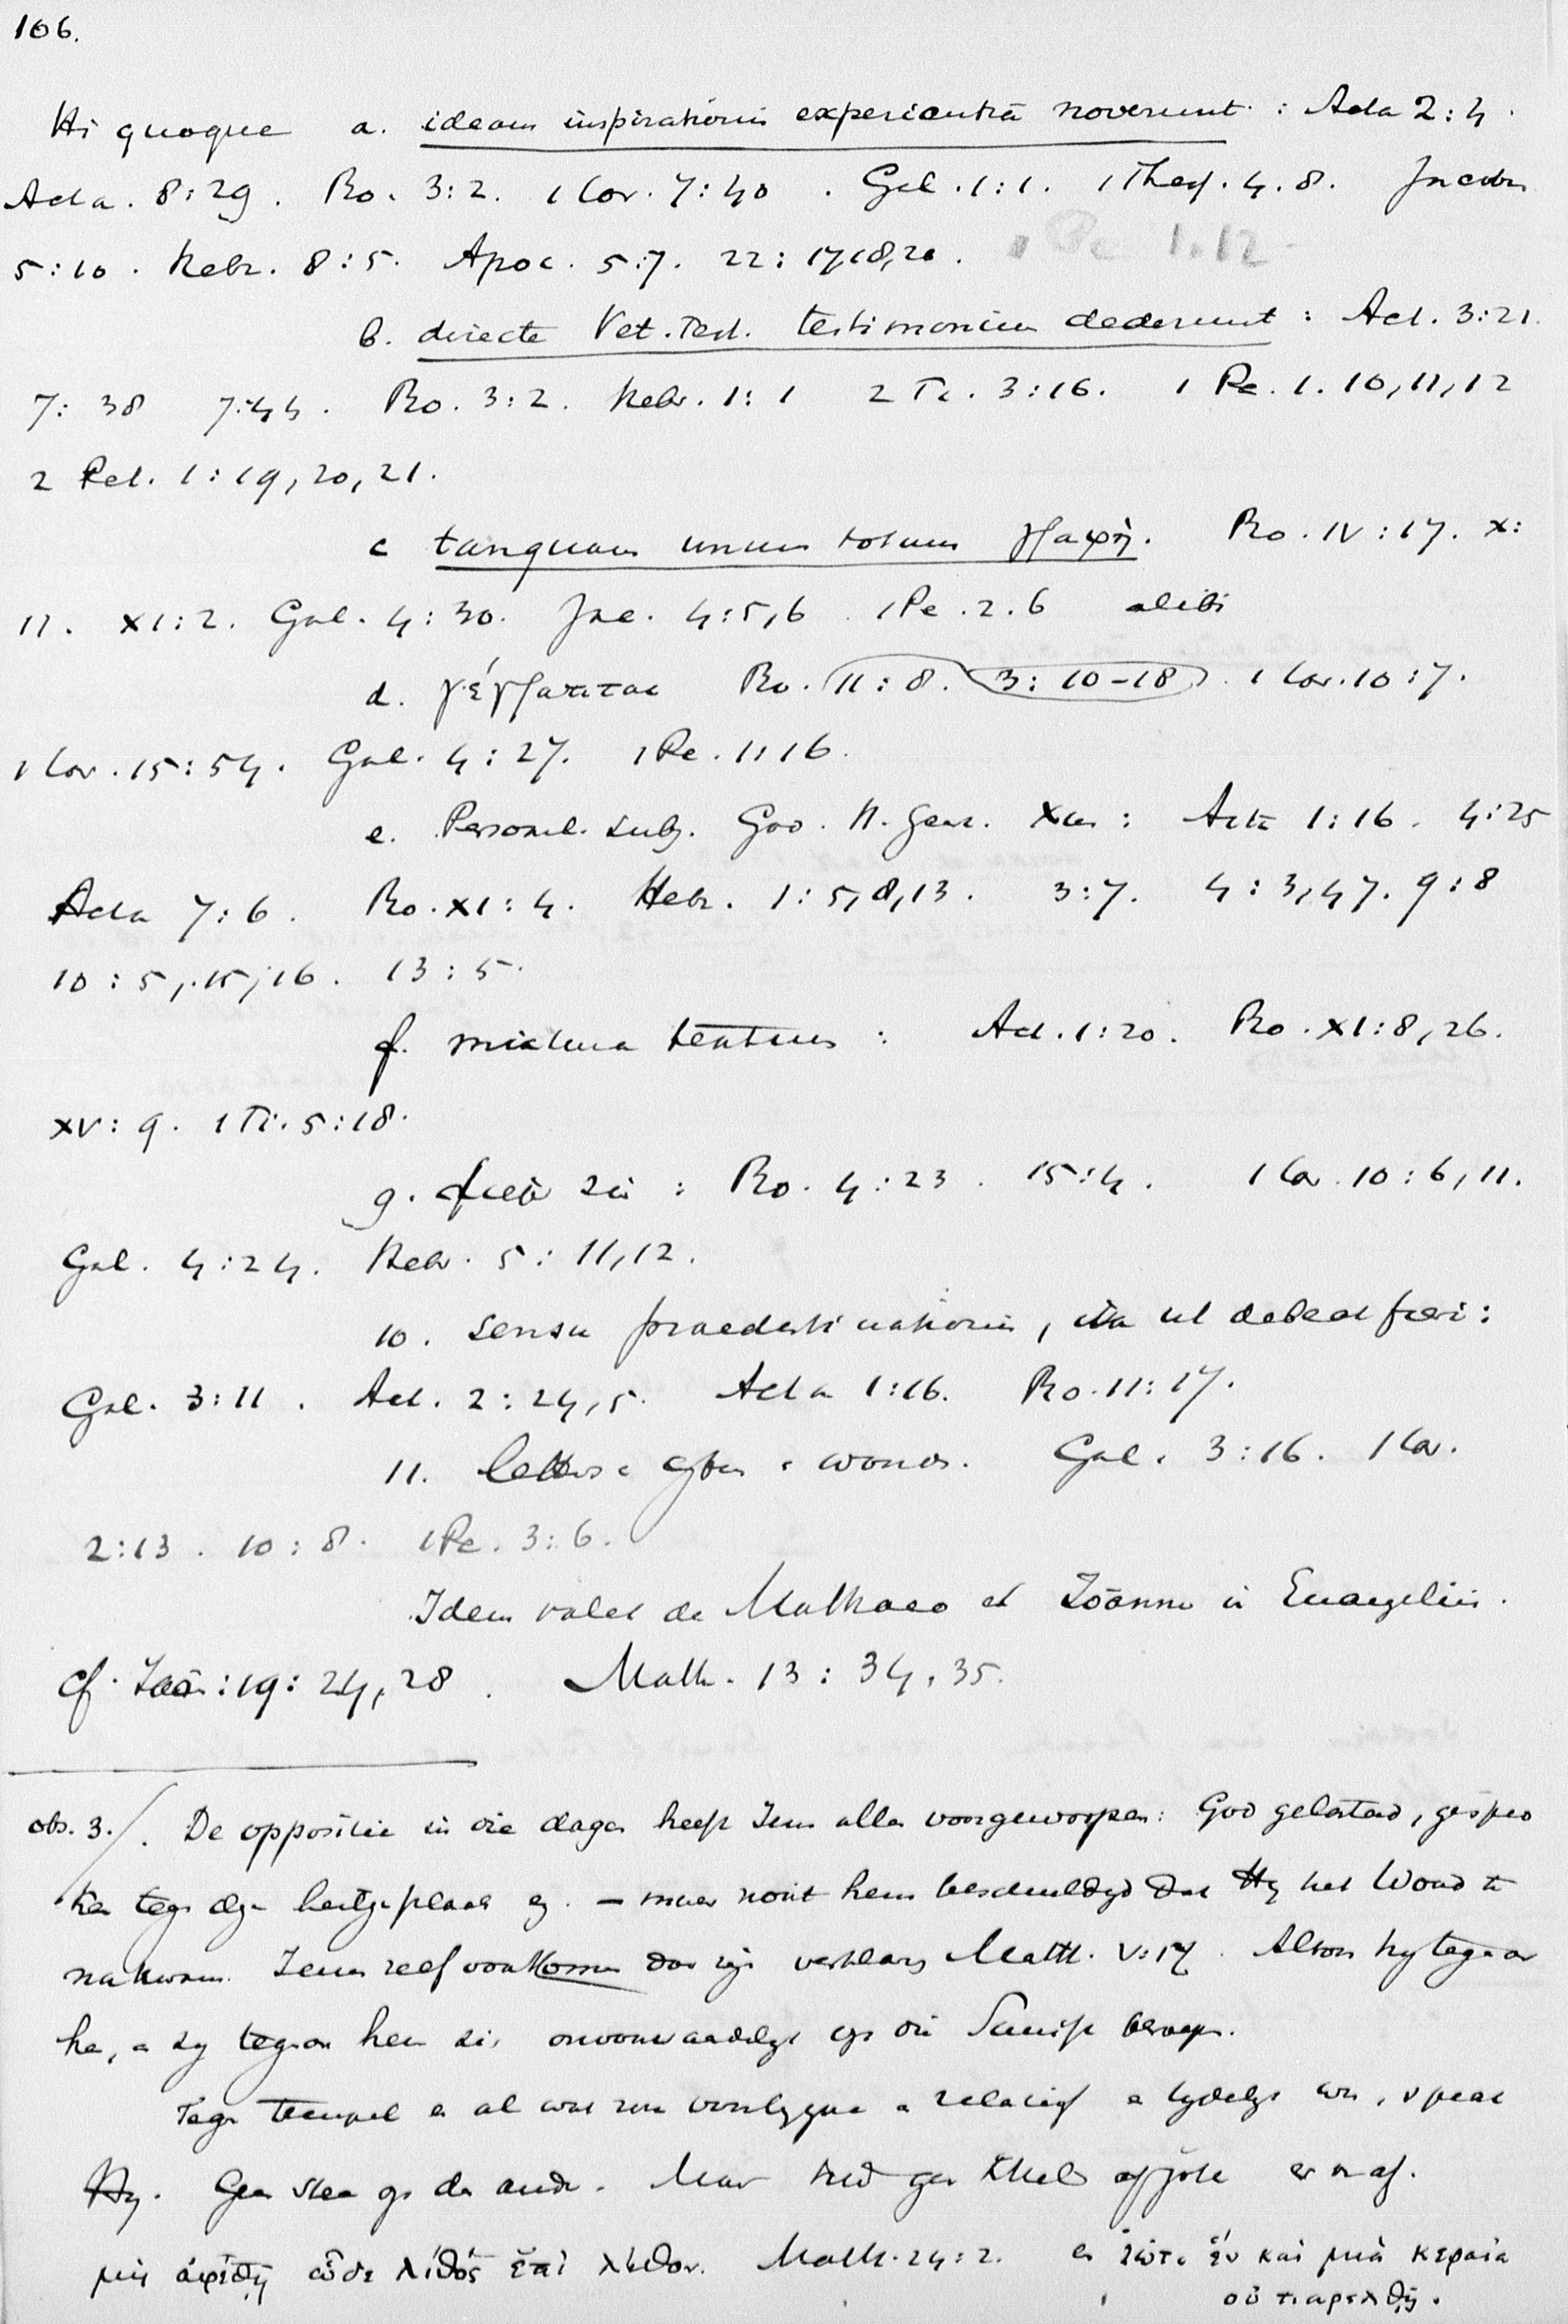 106.
Hi quoque a. ideam inspirationis experientiā noverunt : Acta 2:4.
Acta. 8:29. Ro. 3:2. 1 Cor. 7:40. Gal. 1:1. 1 Thess. 4.8. Jacobus
5:10. Hebr. 8:5. Apoc. 5:7. 22:17,18,20. 1 Pe 1.12
b. directe Vet. Test. testimonium dederunt : Act. 3:21.
7:38 7:44. Ro. 3:2. Hebr. 1:1 2 Ti. 3:16. 1 Pe. 1. 10, 11, 12
2 Pet. 1:19, 20, 21.
c tanquam unum totum γραφή. Ro. IV:17. X:
11. XI:2. Gal. 4:30. Jac. 4:5,6. 1 Pe. 2.6 alibi
d. γέγραπται Ro. 11:8. 3:10-18. 1 Cor. 10:7.
1 Cor. 15:54. Gal. 4:27. 1 Pe. 1:16.
e. Personl. subj. God. H. Geest. : Acta 1:16. 4:25
Acta 7:6. Ro. XI:4. Hebr. 1:5,8,13. 3:7. 4:3,4 7. 9:8
10:5,15,16. 13:5.
f. mixtura textuum : Act. 1:20. Ro. XI:8, 26.
XV:9. 1 Ti. 5:18.
g. : Ro. 4:23. 15:4. 1 Cor. 10:6, 11.
Gal. 4:24. Hebr. 5:11,12.
10. sensu praedestinationis, ita ut debeat fieri:
Gal. 3:11. Act. 2:24,5. Acta 1:16. Ro. 11:17.
11. woord. Gal. 3:16. 1 Cor.
2:13. 10:8. 1 Pe. 3:6.
Idem valet de Matthaeo et Joänne in Euangeliis.
cf. Joä: 19:24, 28. Matth. 13:34, 35.
obs. 3./. De oppositie in die dagen heeft Jezus alles voorgeworpen: God gelasterd, gespro
ken tegen heilige plaats - maar nooit hem beschuldigd dat Hij het Woord te
nakwam. Jezus zelf voorkomen dat zij verklaart Matth. V:17. Alsook hij tegenover
hen, en zij tegenover hem zich onvoorwaardelijk op die Schrift beroepen.
Tegen tempel en al wat relatief en tijdelijk was, spreekt
Hij. Geen steen op de andere. Maar geen tittel of jota er van af.
μὴ ἀφεθῇ ὧδε λίθος ἐπὶ λίθον. Matth. 24:2. en ἰῶτα ἓν καὶ μία κεραία
οὐ παρέλθῃ.